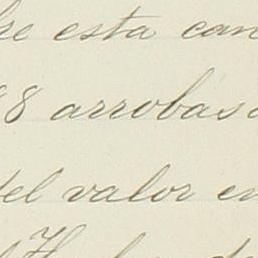 esta can
8 arrobas
del valor en